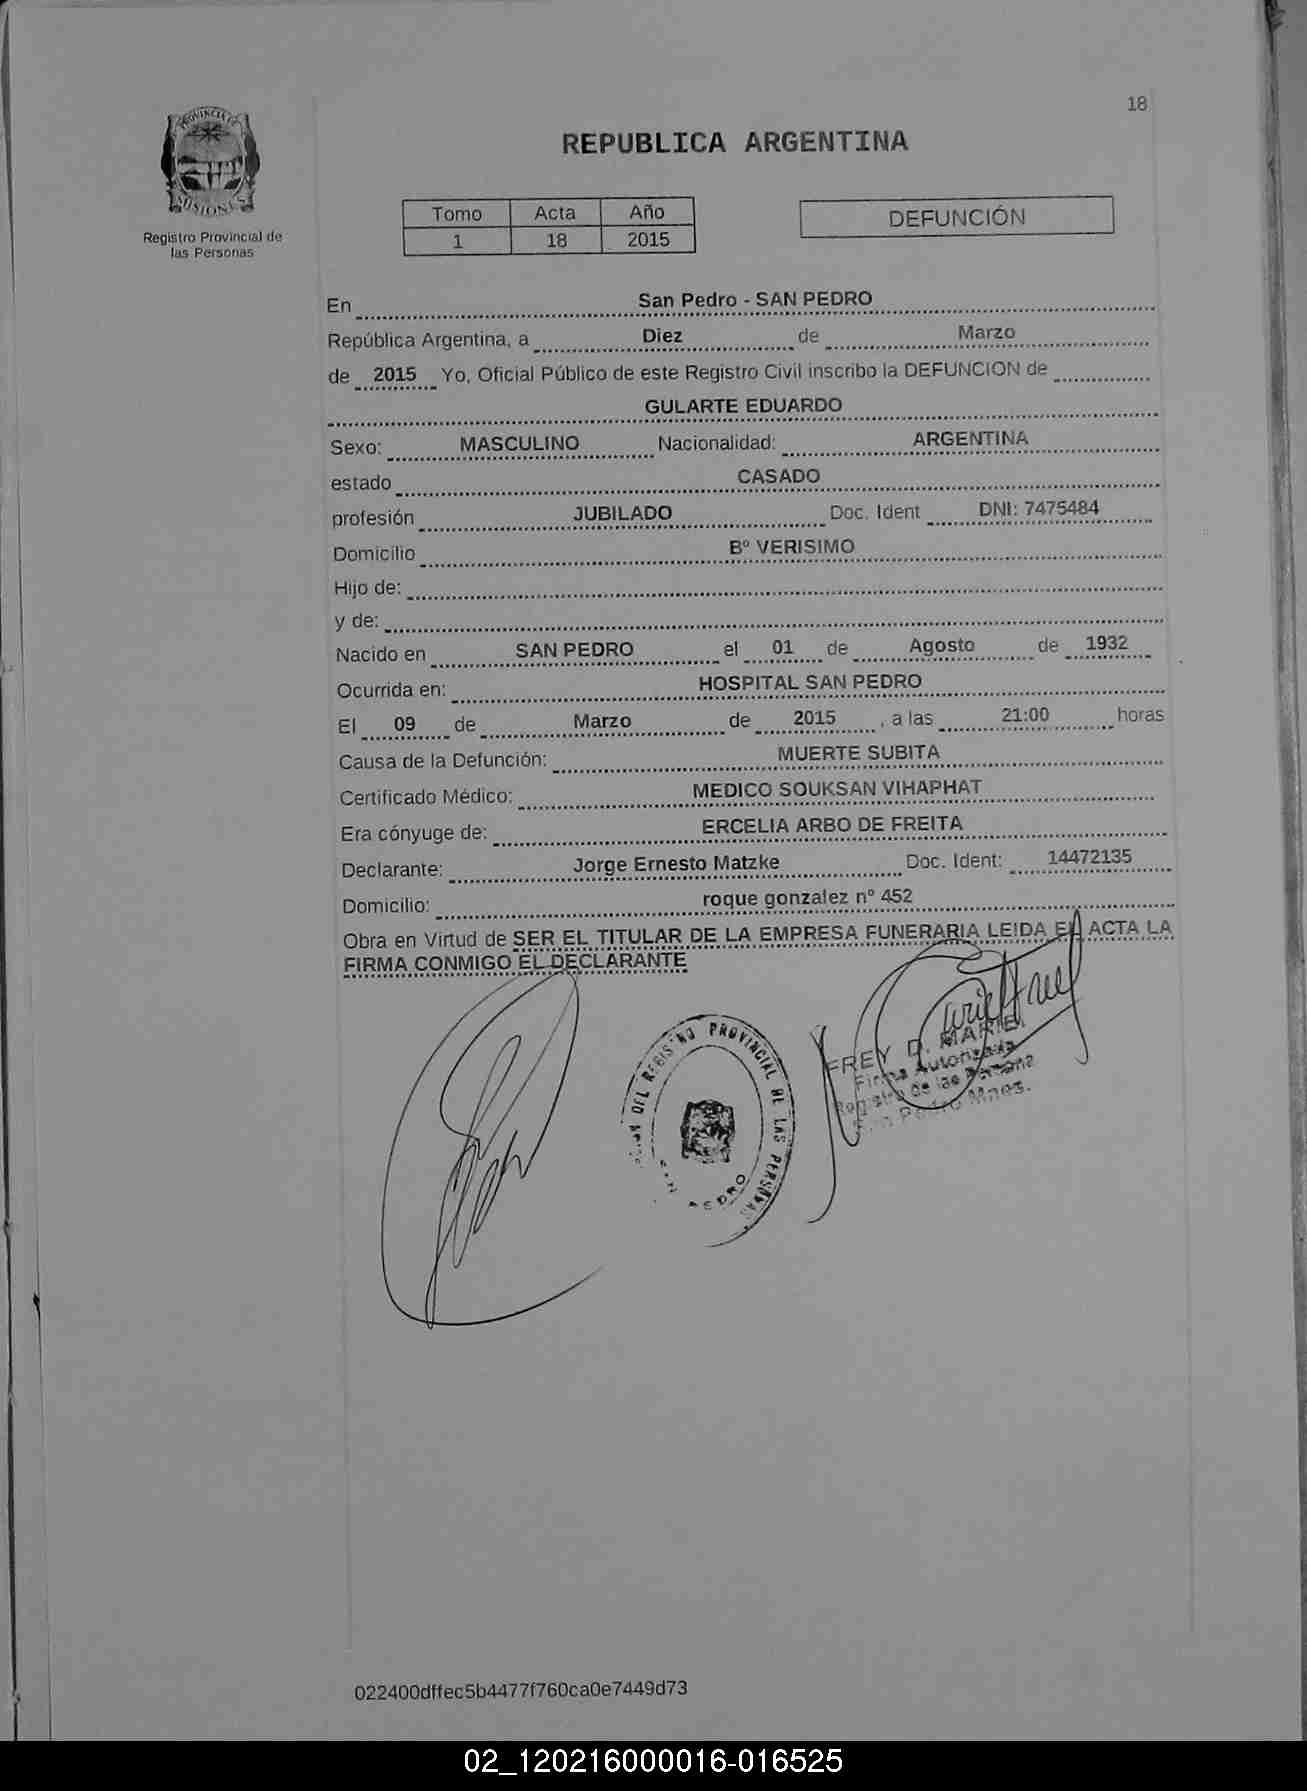 18
PROVINCIA DE
MISIONES
Registro Provincial de
las Personas
REPUBLICA ARGENTINA
Tomo Acta Año
1 18 2015
DEFUNCIÓN
En San Pedro - SAN PEDRO
República Argentina, a Diez de Marzo
de 2015 Yo, Oficial Público de este Registro Civil inscribo la DEFUNCION de
GULARTE EDUARDO
Sexo: MASCULINO Nacionalidad: ARGENTINA
estado CASADO
profesión JUBILADO Doc. Ident DNI: 7475484
Domicilio Bº VERISIMO
Hijo de:
y de:
Nacido en SAN PEDRO el 01 de Agosto de 1932
Ocurrida en: HOSPITAL SAN PEDRO
El 09 de Marzo de 2015 , a las 21:00 horas
Causa de la Defunción: MUERTE SUBITA
Certificado Médico: MEDICO SOUKSAN VIHAPHAT
Era cónyuge de: ERCELIA ARBO DE FREITA
Declarante: Jorge Ernesto Matzke Doc. Ident: 14472135
Domicilio: roque gonzalez nº 452
Obra en Virtud de SER EL TITULAR DE LA EMPRESA FUNERARIA LEIDA EL ACTA LA
FIRMA CONMIGO EL DECLARANTE
DEL REGISTRO PROVINCIAL DE LAS PERSONAS
SAN PEDRO
FREY D. MARIEL
Firma Autorizada
Registro de las Persona
San Pedro Mnes.
022400dffec5b4477f760ca0e7449d73
02_120216000016-016525